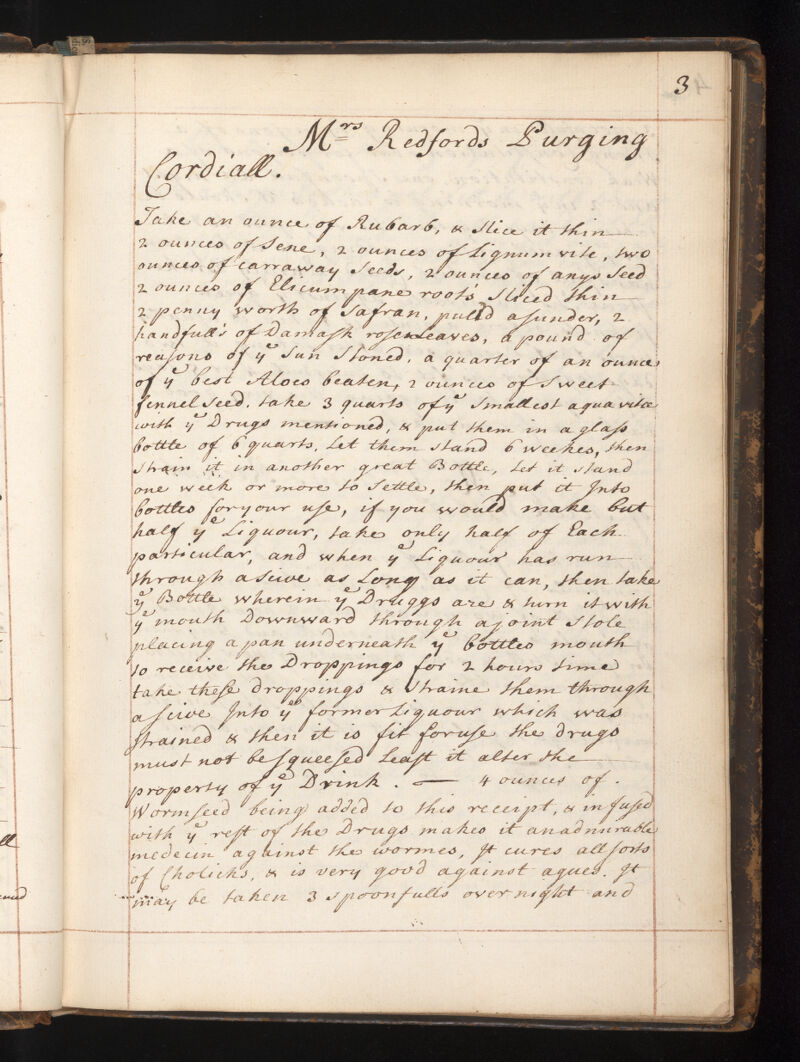 3
Mrs Redfords Purging
Cordiall.
Take an ounce of Rubarb, & slice it thin
2 ounces of Sene, 2 ounces of Lignum vite, two
ounces of carraway seeds, 2 ounces of anys seed
2 ounces of Elicumpane roots sliced thin
2 penny worth of Safran, pulld asunder, 2
handfull's of Damask rose leaves, a pound of
reasons of ye Sun Stoned, a quarter of an ounce
of ye best Aloes beaten, 2 ounces of sweet
fennel seed. take 3 quarts of ye smallest aqua vitæ
with ye Drugs mentioned, & put them in a glass
bottle of 6 quarts, Let them stand 6 weekes, then
strain it in another great Bottle, Let it stand
one week or more to settle, then put it Into
bottles for your use, if you would make but
half ye Liquour, take only half of Each
particular, and when ye Liquour has run
through a scive as Long as it can, then take
ye Bottle wherein ye Druggs are & turn it with
ye mouth Downward through a joint stole
placing a pan underneath ye bottles mouth
to receive the Droppings for 2 hours time
take these droppings & straine them through
a scive Into ye former Liquour which was
strained & then it is fit for use the drugs
must not be squeesed Least it alter the
property of ye Drink. — 4 ounces of.
Wormseed being added to this receipt, & infused
with ye rest of the Drugs makes it an admirable
medecin against the wormes, It cures all sorts
of Cholicks, & is very good against agues. It
may be taken 3 spoonfulls over night and